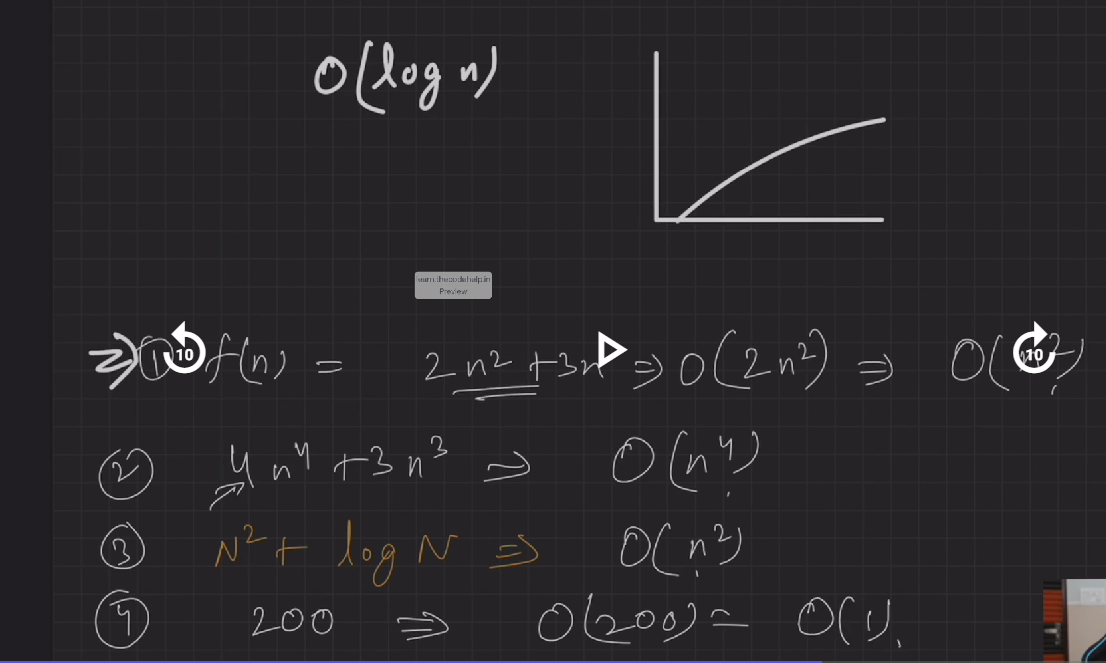 O(log n)
learn.thecodehelp.in
Preview
① f(n) = 2n² + 3n ⇒ O(2n²) ⇒ O(n²)
10
10
② 4n⁴ + 3n³ ⇒ O(n⁴)
③ N² + log N ⇒ O(n²)
④ 200 ⇒ O(200) = O(1)